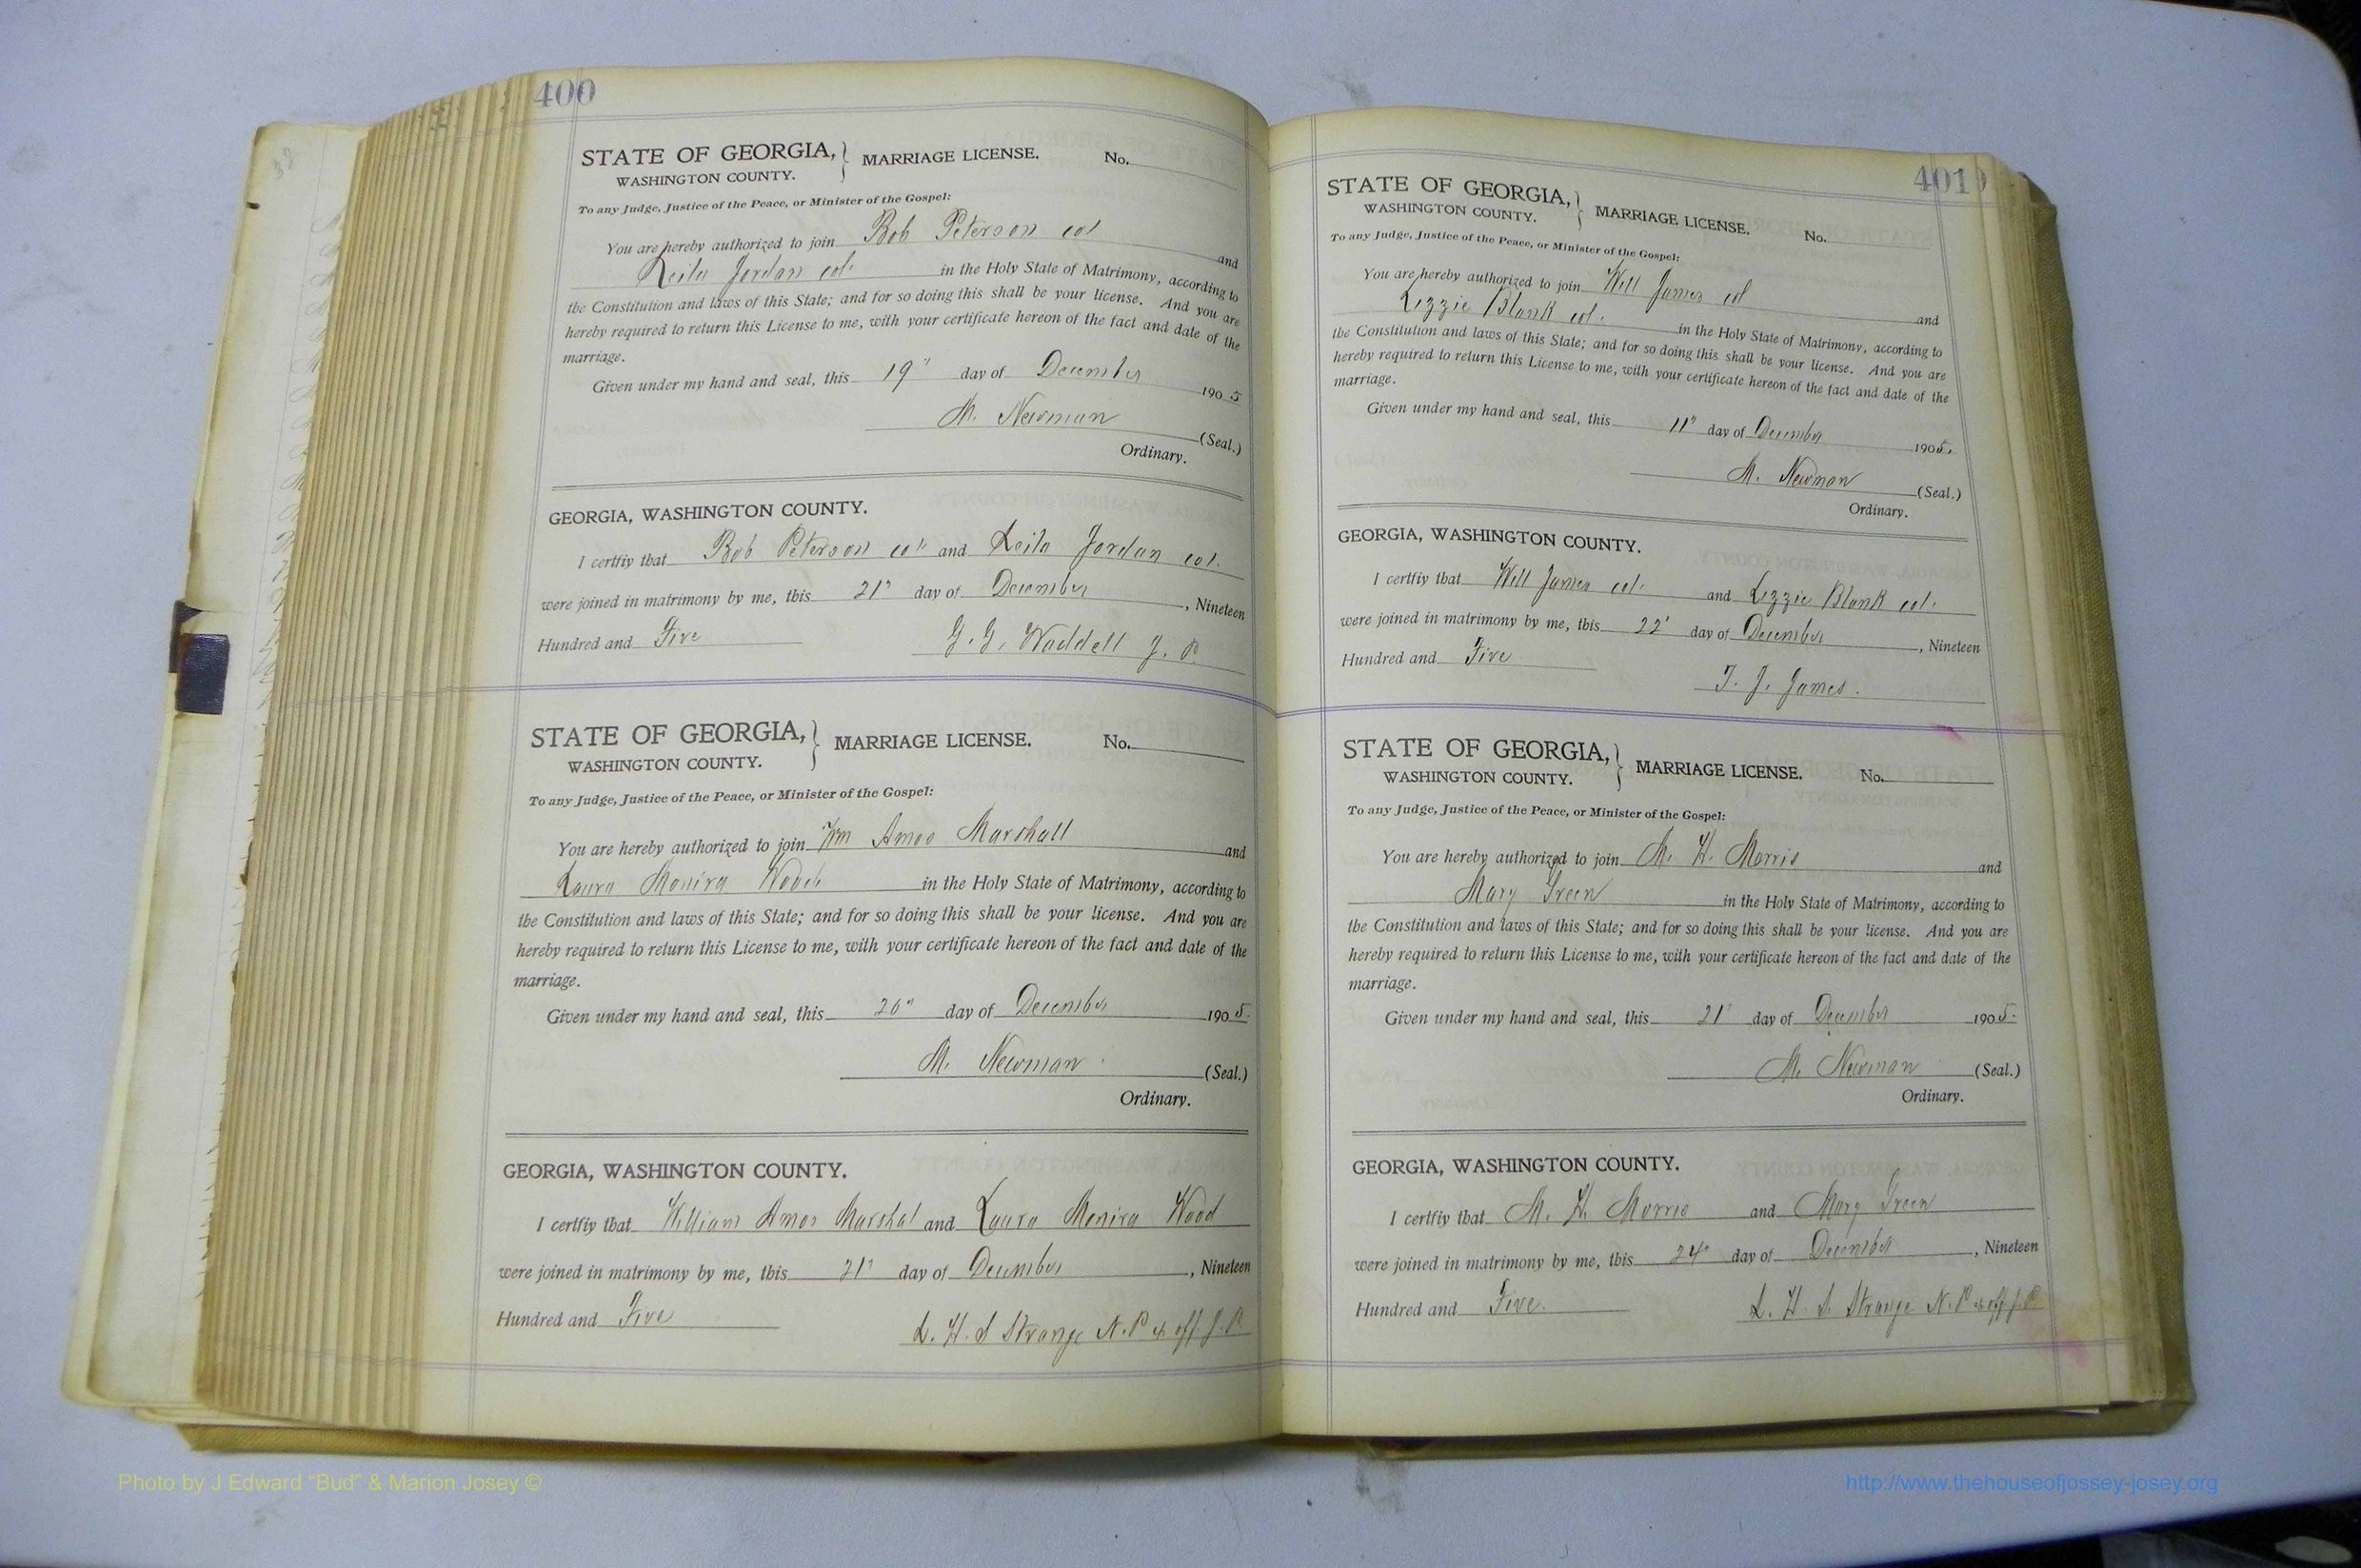 400
STATE OF GEORGIA, } MARRIAGE LICENSE. No.
WASHINGTON COUNTY.
To any Judge, Justice of the Peace, or Minister of the Gospel:
You are hereby authorized to join Bob Peterson col and
Leila Jordan col. in the Holy State of Matrimony, according to
the Constitution and laws of this State; and for so doing this shall be your license. And you are
hereby required to return this License to me, with your certificate hereon of the fact and date of the
marriage.
Given under my hand and seal, this 19" day of December 1905
M. Newman (Seal.)
Ordinary.
GEORGIA, WASHINGTON COUNTY.
I certfiy that Bob Peterson col and Leila Jordan col.
were joined in matrimony by me, this 21" day of December, Nineteen
Hundred and Five G. G. Waddell J. P.
STATE OF GEORGIA, } MARRIAGE LICENSE. No.
WASHINGTON COUNTY.
To any Judge, Justice of the Peace, or Minister of the Gospel:
You are hereby authorized to join Wm Amos Marshall and
Laura Monira Wood in the Holy State of Matrimony, according to
the Constitution and laws of this State; and for so doing this shall be your license. And you are
hereby required to return this License to me, with your certificate hereon of the fact and date of the
marriage.
Given under my hand and seal, this 20" day of December 1905.
M. Newman (Seal.)
Ordinary.
GEORGIA, WASHINGTON COUNTY.
I certfiy that William Amos Marshal and Laura Monira Wood
were joined in matrimony by me, this 21" day of December, Nineteen
Hundred and Five L. H. S Strange N. P & off J. P.
401
STATE OF GEORGIA, } MARRIAGE LICENSE. No.
WASHINGTON COUNTY.
To any Judge, Justice of the Peace, or Minister of the Gospel:
You are hereby authorized to join Will James col and
Lizzie Blank col. in the Holy State of Matrimony, according to
the Constitution and laws of this State; and for so doing this shall be your license. And you are
hereby required to return this License to me, with your certificate hereon of the fact and date of the
marriage.
Given under my hand and seal, this 11" day of December 1905.
M. Newman (Seal.)
Ordinary.
GEORGIA, WASHINGTON COUNTY.
I certfiy that Will James col. and Lizzie Blank col.
were joined in matrimony by me, this 22' day of December, Nineteen
Hundred and Five T. J. James.
STATE OF GEORGIA, } MARRIAGE LICENSE. No.
WASHINGTON COUNTY.
To any Judge, Justice of the Peace, or Minister of the Gospel:
You are hereby authorized to join M. H. Morris and
Mary Green in the Holy State of Matrimony, according to
the Constitution and laws of this State; and for so doing this shall be your license. And you are
hereby required to return this License to me, with your certificate hereon of the fact and date of the
marriage.
Given under my hand and seal, this 21' day of December 1905.
M. Newman (Seal.)
Ordinary.
GEORGIA, WASHINGTON COUNTY.
I certfiy that M. H. Morris and Mary Green
were joined in matrimony by me, this 24" day of December, Nineteen
Hundred and Five. L. H. S. Strange N. P & off J. P.
Photo by J Edward “Bud” & Marion Josey ©
http://www.thehouseofjossey-josey.org